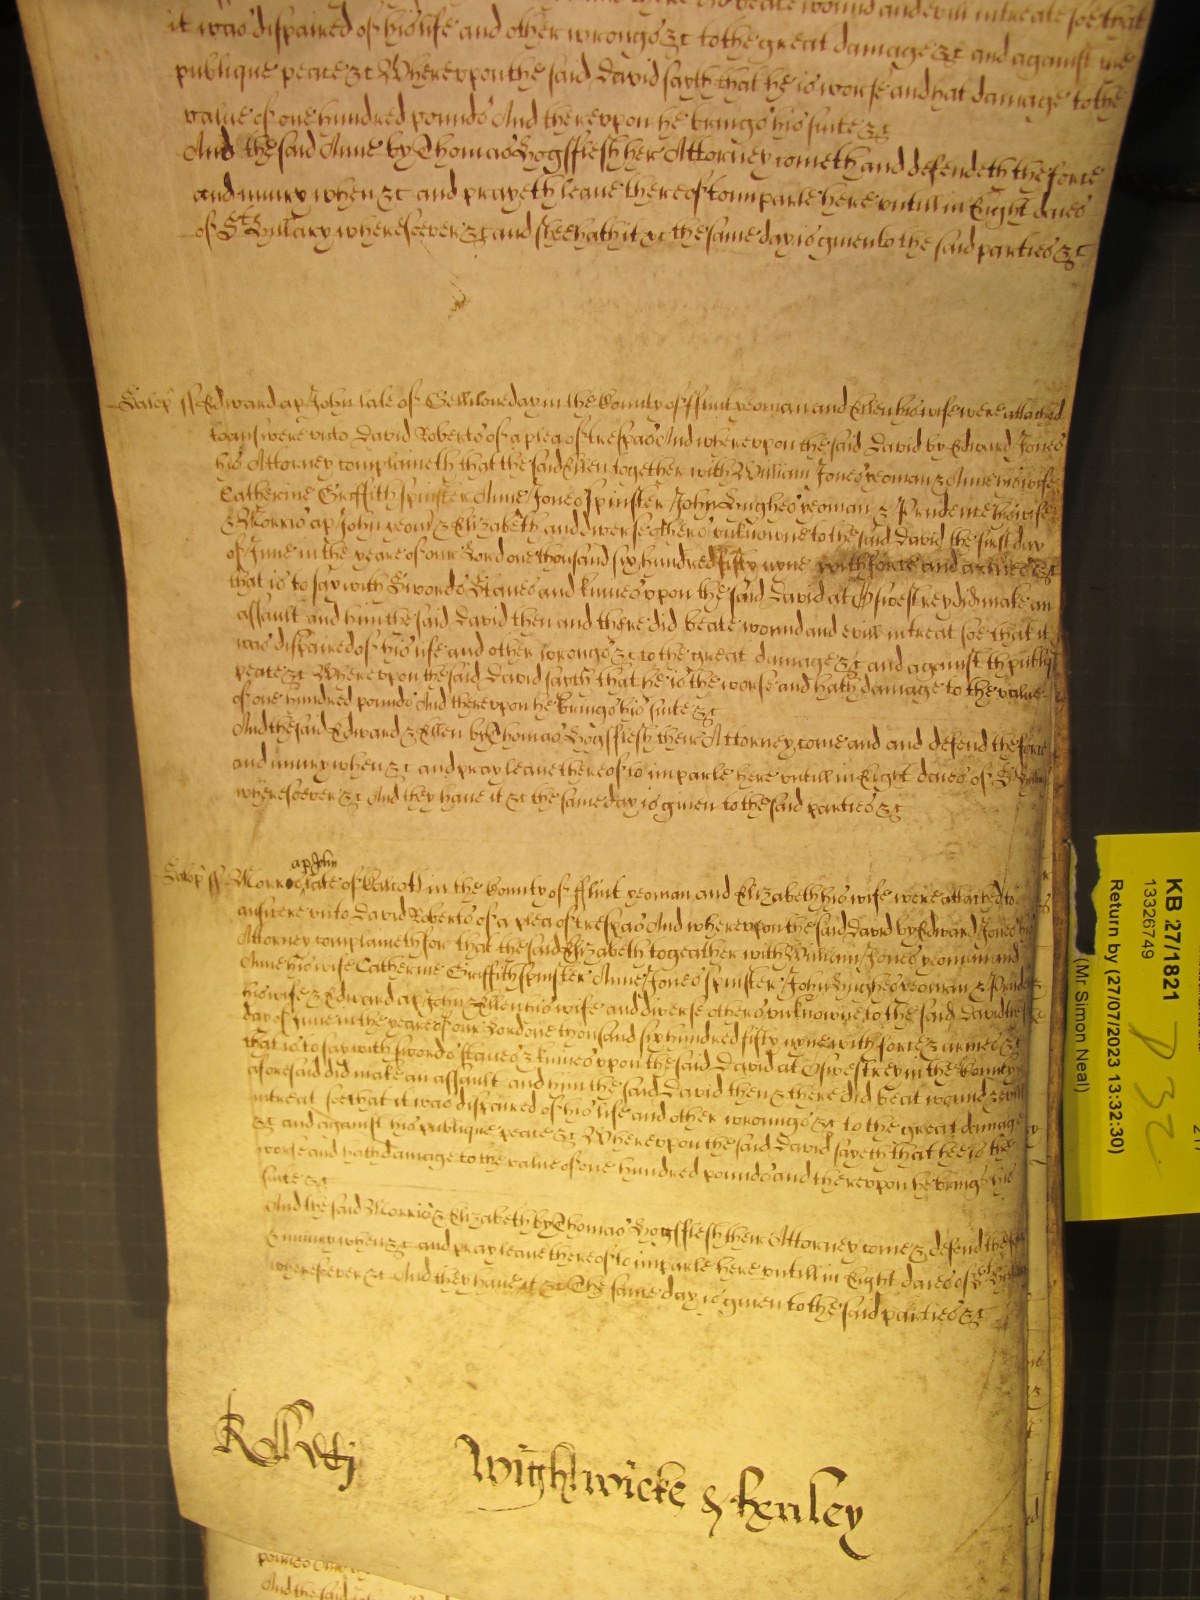 it was dispaired of his life and other wrongs &c to the great damage &c and against the
publique peace &c Wherevpon the said David sayth that he is worse and hat damage to the
value of one hundred pounds And therevpon he brings his suite &c
And the said Anne by Thomas Hogsflesh her Attorney cometh and defendeth the force
and iniury when &c and prayeth leave thereof to imparle here vntill in Eight daies
of St Hillary wheresoever &c and shee hath it &c the same day is given to the said parties &c
Salop ss Edward ap John late of in the County of fflint yeoman and Ellen his wife were attached
to answere vnto David Roberts of a plea of trespas And wherevpon the said David by Edward Jones
his Attorney complaineth that the said Ellen together with William Jones yeoman & Anne his wife
Catherine Griffith spinster Anne Jones spinster John Hughes yeoman & Prudence his wife
& Morris ap John yeom & Elizabeth and diverse others vnknowne to the said David the first day
of June in the yeare of our Lord one thousand six hundred fifty nyne with force and armes &c
that is to say with Swords Staues and knives vpon the said David at Oswestrey did make an
assault and him the said David then and there did beate wound and evill intreat soe that it
was dispaired of his life and other wrongs &c to the great damage &c and against the publiq
peace &c Wherevpon the said David sayth that he is the worse and hath damage to the value
of one hundred pounds And therevpon he brings his suite &c
And the said Edward & Ellen by Thomas Hogsflesh their Attorney come and and defend the force
and iniury when &c and pray leave thereof to imparle here vntill in Eight daies of St
wheresoever &c And they haue it &c the same day is given to the said parties &c
ap John
Salop ss Morris late of in the County of fflint yeoman and Elizabeth his wife were attached to
answere vnto David Roberts of a plea of trespas And wherevpon the said David by Edward Jones his
Attorney complaineth for that the said Elizabeth togeather with William Jones yeoman and
Anne his wife Catherine Griffith spinster Anne Jones spinster John Hughes yeoman &
his wife & Edward ap John & Ellen his wife and diverse others vnknowne to the said David the
day of June in the yeare of our Lord one thousand six hundred fifty nyne with force & armes &c
that is to say with swords staues & knives vpon the said David at Oswestrey in the County
aforesaid did make an assault and him the said David then & there did beat wound & evill
intreat soe that it was dispaired of his life and other wrongs &c to the great damage
&c and against his publique peace &c Wherevpon the said David sayeth that hee is the
worse and hath damage to the value of one hundred pounds and therevpon he brings his
suite &c
And the said Morris & Elizabeth by Thomas Hogsflesh their Attorney come & defend the
& iniury when &c and pray leave thereof to imparle here vntill in Eight daies of St
wheresoever &c And they haue it &c The same day is given to the said parties &c
Wightwicke &
And the said
KB 27/1821
13326749
Return by (27/07/2023 13:32:30)
(Mr Simon Neal)